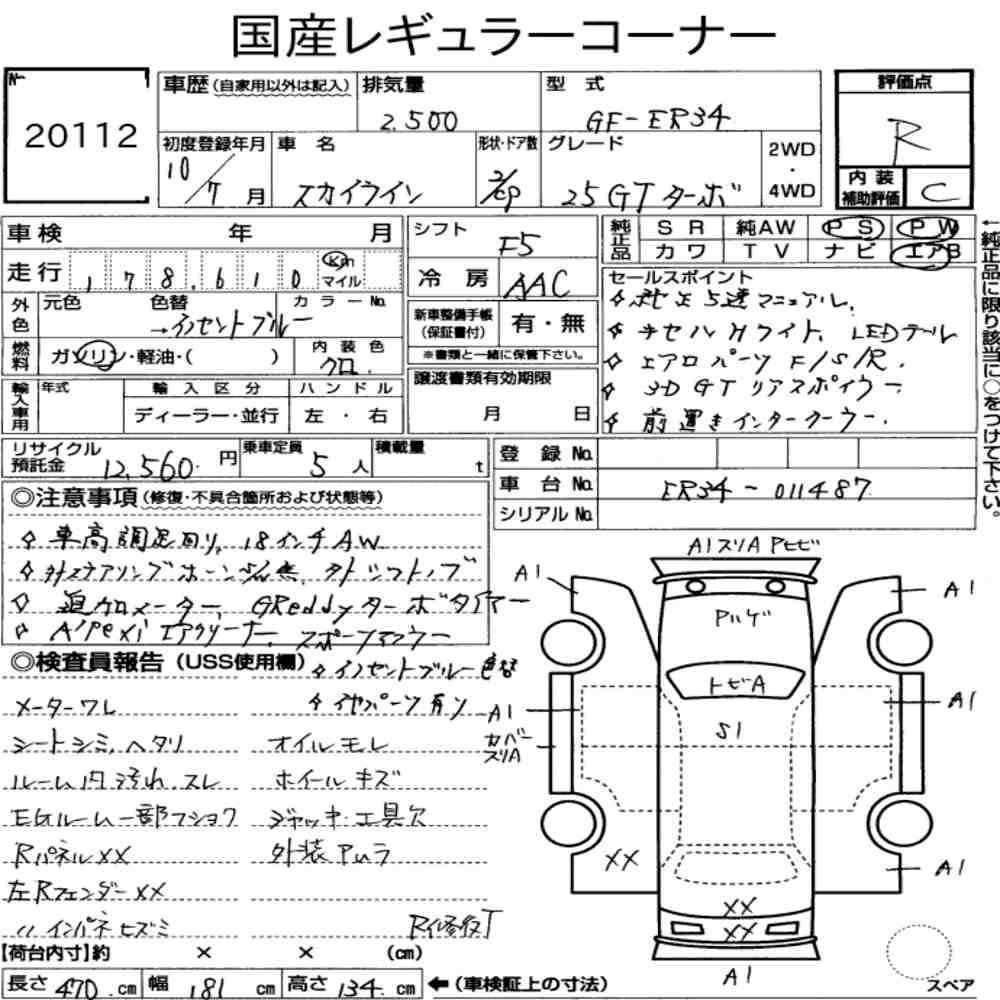 国産レギュラーコーナー
No.
20112
車歴(自家用以外は記入)
排気量
2,500
型 式
GF-ER34
評価点
R
初度登録年月
10/7月
車 名
スカイライン
形状・ドア数
2/cp
グレード
25GTターボ
2WD
・
4WD
内 装
補助評価
C
車検 年 月
シフト
F5
純正品
SR 純AW PS PW
カワ TV ナビ エアB
←純正品に限り該当に○をつけて下さい。
走行 178,610 Km
マイル
冷 房
AAC
セールスポイント
外色
元色 色替 カラーNo.
→イノセントブルー
新車整備手帳
(保証書付)
有・無
※書類と一緒に保管下さい。
燃料
ガソリン・軽油・( )
内装色
クロ
5速マニュアル.
ライト、LEDテール
エアロパーツ F/S/R.
3D GT リアスポイラー
前置きインタークーラー.
輸入車用
年式
輸入区分
ハンドル
ディーラー・並行
左・右
譲渡書類有効期限
月 日
リサイクル
預託金
12,560 円
乗車定員
5人
積載量
t
登 録 No.
車 台 No.
ER34-011487
シリアル No.
◎注意事項(修復・不具合箇所および状態等)
車高調足回り, 18インチAW
社外ステアリングホーン, 社外シフトノブ
追加メーター, GReddyターボタイマー
A'PEXi エアクリーナー, スポーツマフラー
◎検査員報告(USS使用欄)
イノセントブルー色替
メーターワレ
シートシミ,ヘタリ
オイルモレ
ルーム内汚れ,スレ
ホイールキズ
EGルーム一部フショク
ジャッキ・工具欠
RパネルXX
外装アムラ
左RフェンダーXX
〃インパネヒズミ
R修復T
【荷台内寸】約 × × (cm)
長さ 470 cm 幅 181 cm 高さ 134 cm
←(車検証上の寸法)
A1スリAPヒビ
A1
A1
Pハゲ
トビA
A1
A1
カバースリA
S1
XX
A1
XX
XX
A1
スペア